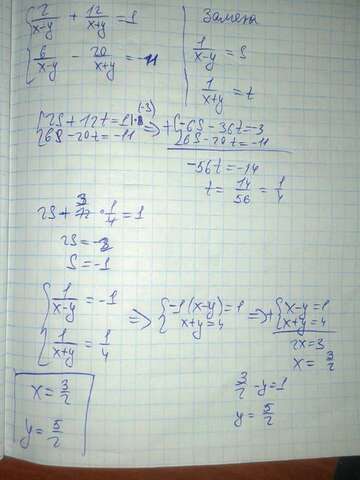 { 2/(x-y) + 12/(x+y) = 1
{ 6/(x-y) - 20/(x+y) = -11
Замена
1/(x-y) = S
1/(x+y) = t
{ 2S + 12t = 1 |·(-3)
{ 6S - 20t = -11
=> + { -6S - 36t = -3
{ 6S - 20t = -11
-56t = -14
t = 14/56 = 1/4
2S + 12 · 1/4 = 1
3
2S = -2
S = -1
{ 1/(x-y) = -1
{ 1/(x+y) = 1/4
=> { -1(x-y) = 1
{ x+y = 4
=> + { x-y = 1
{ x+y = 4
2x = 3
x = 3/2
3/2 - y = 1
y = 5/2
x = 3/2
y = 5/2